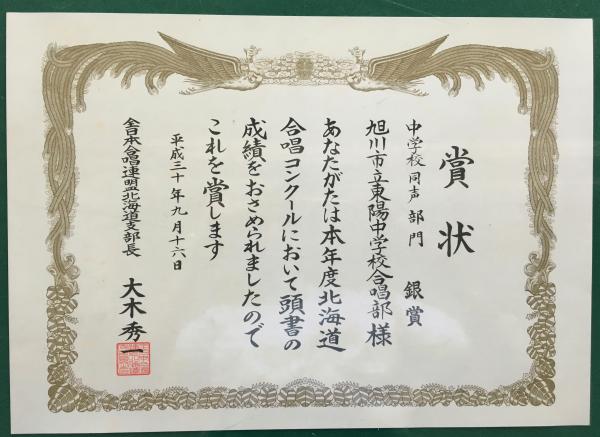 賞状
中学校同声部門 銀賞
旭川市立東陽中学校合唱部様
あなたがたは本年度北海道
合唱コンクールにおいて頭書の
成績をおさめられましたので
これを賞します
平成三十年九月十六日
全日本合唱連盟北海道支部長 大木秀一